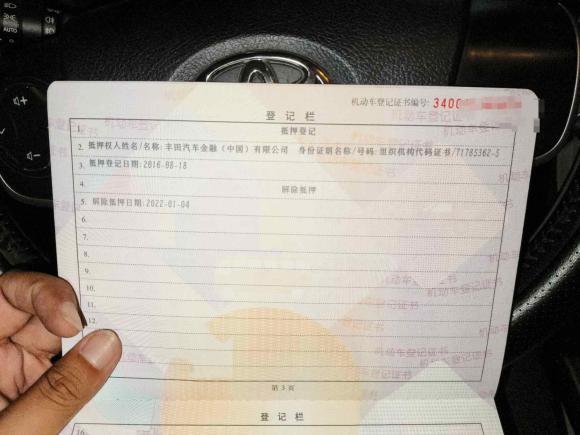 AUTO
机动车登记证书编号: 3400
登记栏
1. 抵押登记
2. 抵押权人姓名/名称:丰田汽车金融(中国)有限公司 身份证明名称/号码:组织机构代码证书/71785362-5
3. 抵押登记日期:2016-08-18
4. 解除抵押
5. 解除抵押日期:2022-01-04
6.
7.
8.
9.
10.
11.
12.
第3页
登记栏